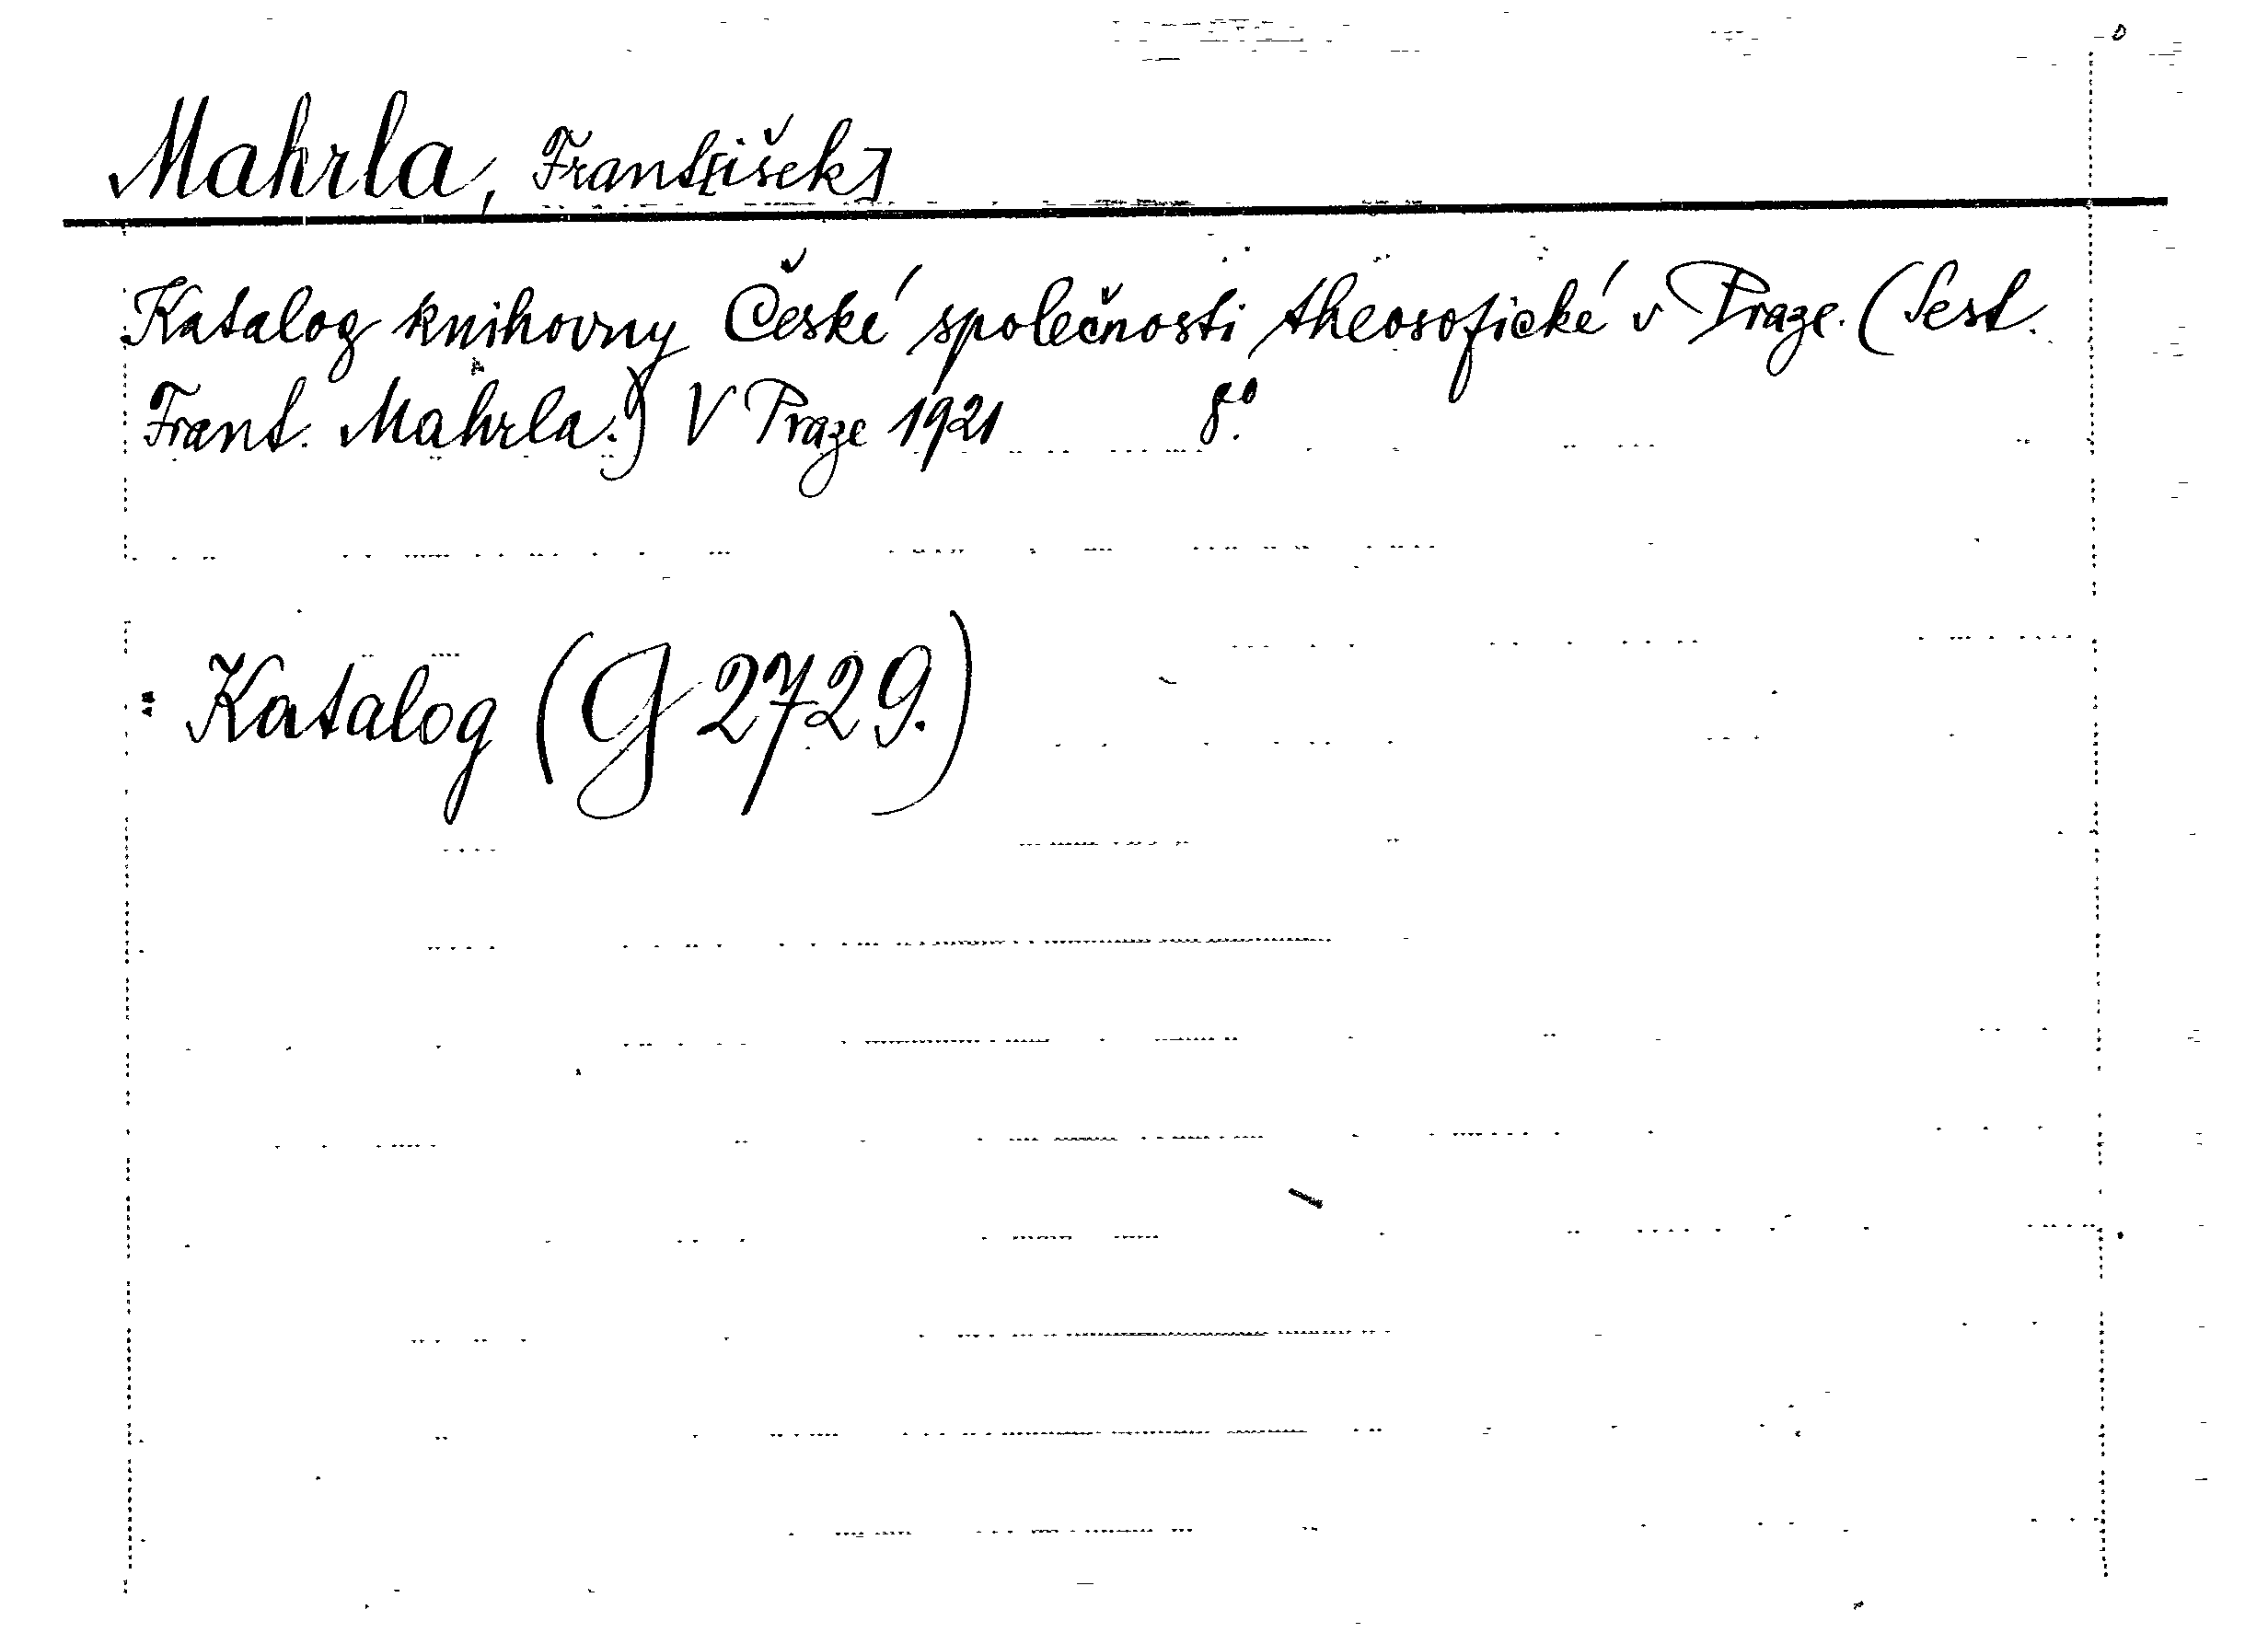 Mahrla, Frant[išek]
Katalog knihovny České společnosti theosofické v Praze. (Sest.
Frant. Mahrla.) V Praze 1921 8°.
: Katalog (G 2729.)